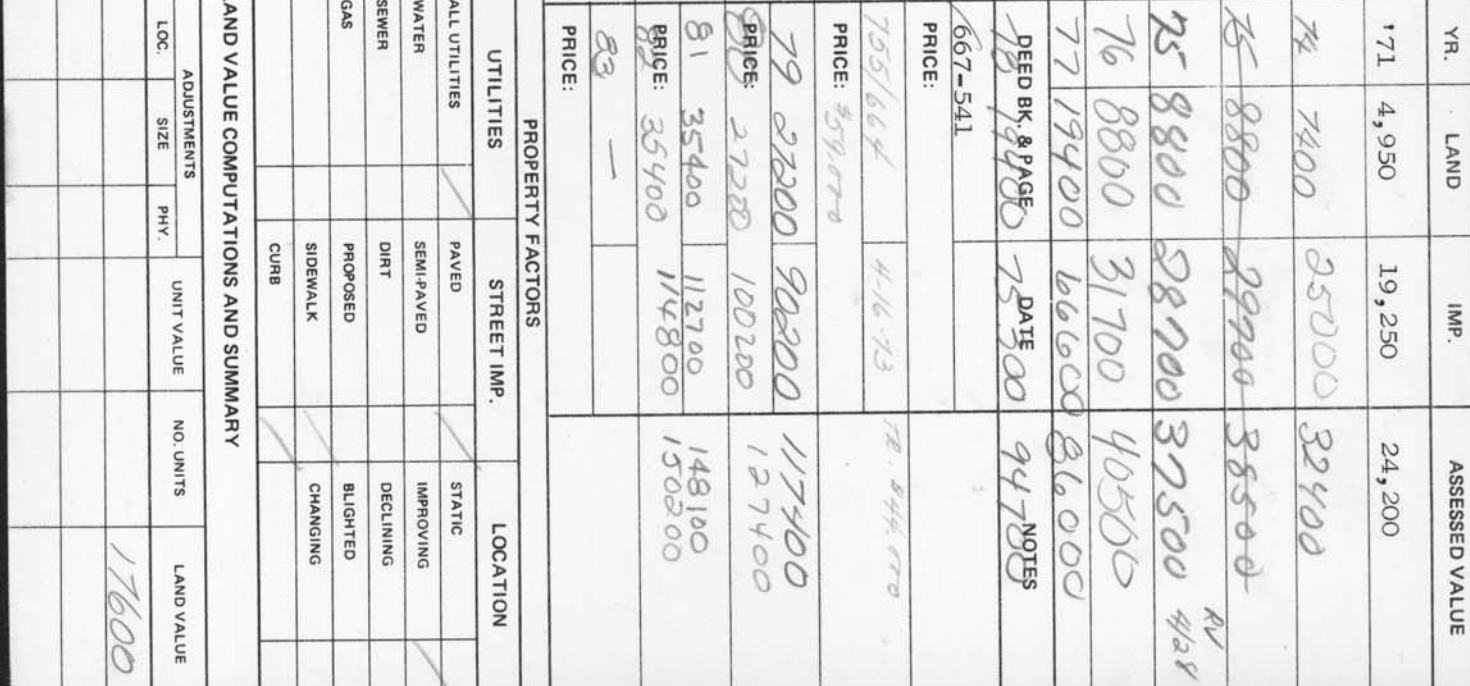 YR. LAND IMP. ASSESSED VALUE
'71 4,950 19,250 24,200
74 7400 25000 32400
75 8800 29700 38500
RV
75 8800 28700 37500 4/28
76 8800 31700 40500
77 19400 66600 86000
DEED BK. & PAGE DATE NOTES
78 19400 75300 94700
667-541
PRICE:
755/664 4-16-73
PRICE: $59,000
79 27200 90200 117400
PRICE: 27200 100200 127400
81 35400 112700 148100
PRICE: 35400 114800 150200
83 —
PRICE:
PROPERTY FACTORS
UTILITIES STREET IMP. LOCATION
ALL UTILITIES PAVED STATIC
WATER SEMI-PAVED IMPROVING
SEWER DIRT DECLINING
GAS PROPOSED BLIGHTED
SIDEWALK CHANGING
CURB
LAND VALUE COMPUTATIONS AND SUMMARY
ADJUSTMENTS
LOC. SIZE PHY. UNIT VALUE NO. UNITS LAND VALUE
17600